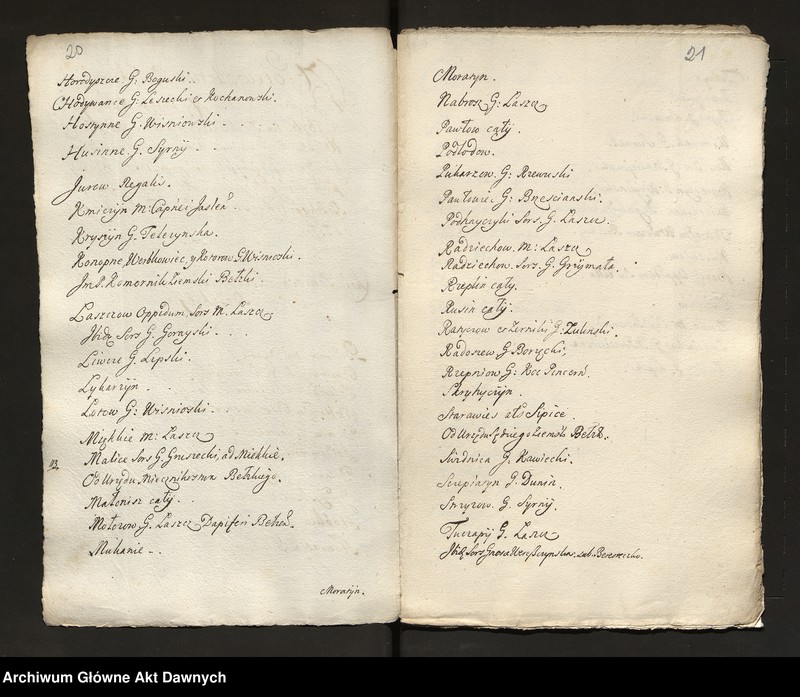 20
Horodyszcze G: Boguski.
Chodywance G. Leszecki et Kochanowski.
Hostynne G. Wisniowski
Husinne G. Syrny
Jurow Regalis.
Kmiczyn M:
Kryszyn G. Telezynska.
Konopne, Werbkowice, y Kotorow G Wisnioski.
Jm P. Komornik Ziemski Bełzki
Laszczow Oppidum Sors M. Laszcz
Ibid. Sors G. Gornyski.
Liwcze G. Lipski.
Lykarzyn
Lotow G: Wisnioski
Miękkie M: Laszcz
Malice Sors G. Gruszecki, ad Miękkie.
Od Urzędu Miecznikostwa Bełzkiego.
Małonisz cały
Mołozow G. Laszcz Dapiferi Bełzen.
Muhanie
Moratyn.
21
Moratyn.
Nabroz G: Laszcz
Pawłow cały.
Podłodow.
Pukarzow G: Rzewuski
Pawłowic G: Brzescianski.
Podhayczyki Sors. G. Laszcz.
Radziechow. M: Laszcz
Radziechow. Sors. G. Grzymała
Rzeplin cały.
Rusin cały.
Ratyczow et Zerniki G: Zulinski.
Radostow G Borzęcki,
Rzepniow G: Koc Pincern.
Skryhyczyn.
Starawies als Sipice
Od Urzędu Sędziego Ziemsk. Bełzk.
Swidnica G. Kawiecki.
Szczepiatyn G. Dunin.
Smyzow. G. Syrny.
Tuczapy G. Laszcz
Ibid. Sors Grosa Wereszczynska. Beresteczko.
Archiwum Główne Akt Dawnych